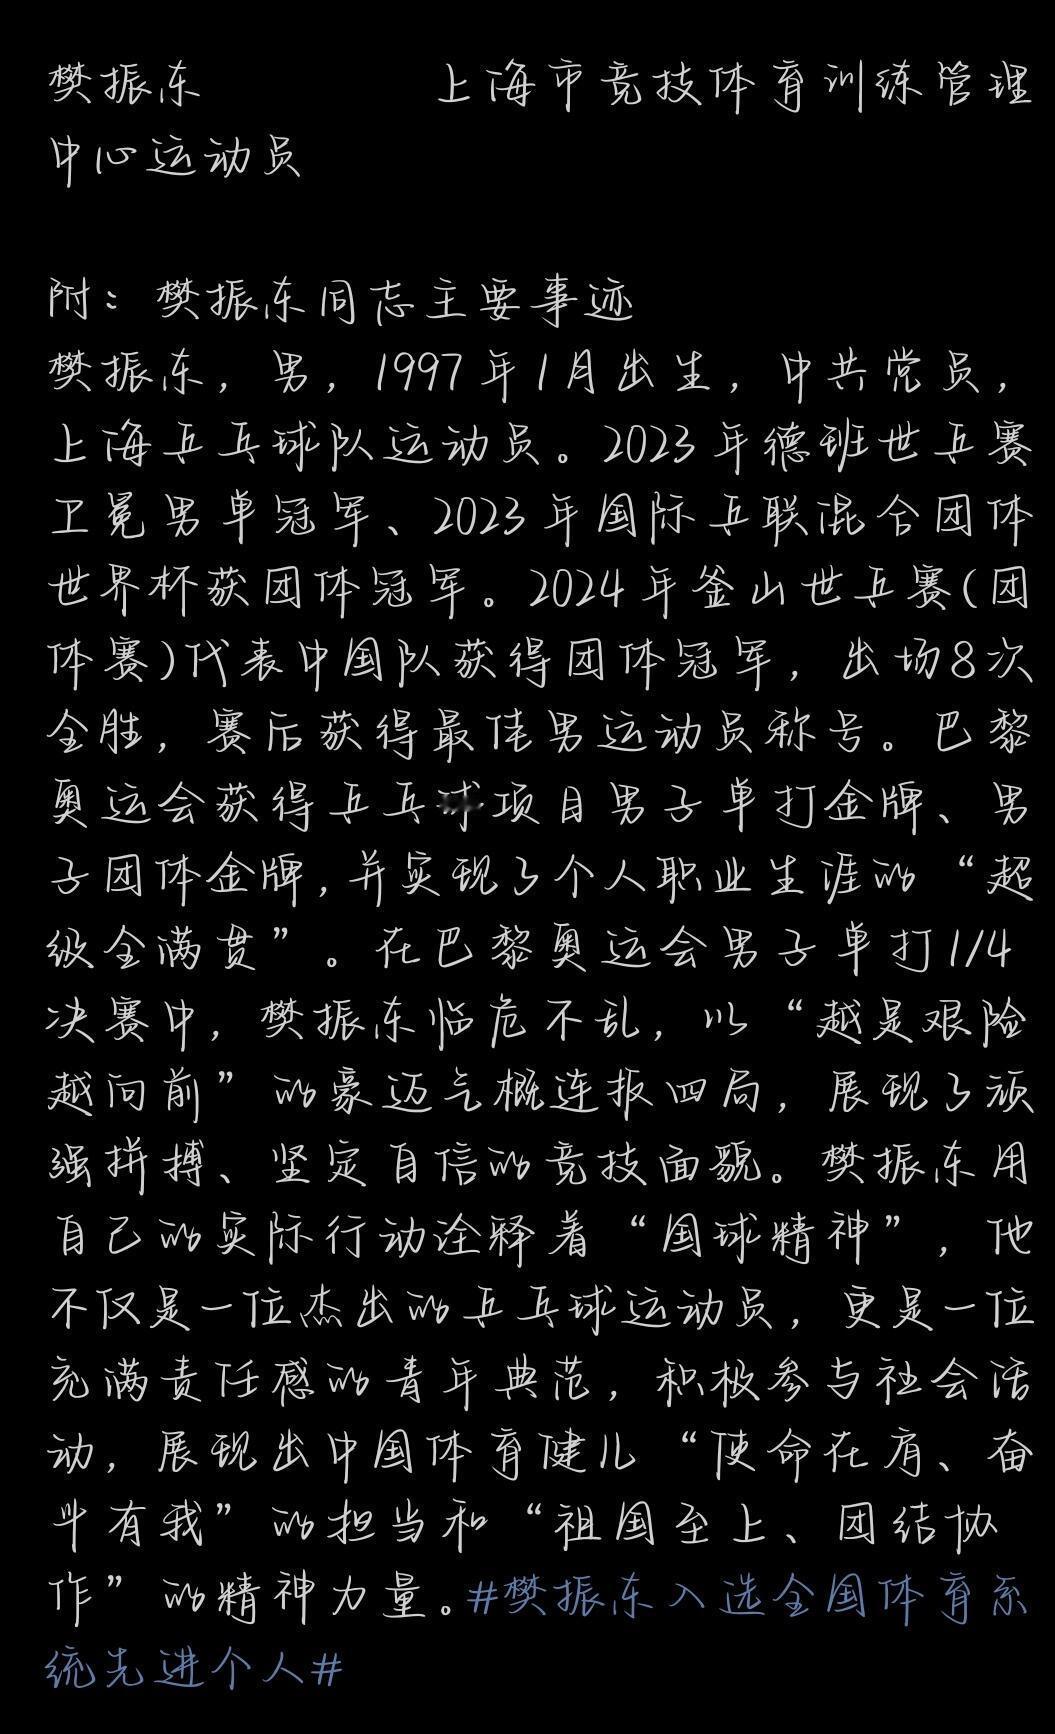 樊振东 上海市竞技体育训练管理
中心运动员
附：樊振东同志主要事迹
樊振东，男，1997年1月出生，中共党员，
上海乒乓球队运动员。2023年德班世乒赛
卫冕男单冠军、2023年国际乒联混合团体
世界杯获团体冠军。2024年釜山世乒赛(团
体赛)代表中国队获得团体冠军，出场8次
全胜，赛后获得最佳男运动员称号。巴黎
奥运会获得乒乓球项目男子单打金牌、男
子团体金牌,并实现了个人职业生涯的“超
级全满贯”。在巴黎奥运会男子单打1/4
决赛中，樊振东临危不乱，以“越是艰险
越向前”的豪迈气概连扳四局，展现了顽
强拼搏、坚定自信的竞技面貌。樊振东用
自己的实际行动诠释着“国球精神”，他
不仅是一位杰出的乒乓球运动员，更是一位
充满责任感的青年典范，积极参与社会活
动，展现出中国体育健儿“使命在肩、奋
斗有我”的担当和“祖国至上、团结协
作”的精神力量。#樊振东入选全国体育系
统先进个人#